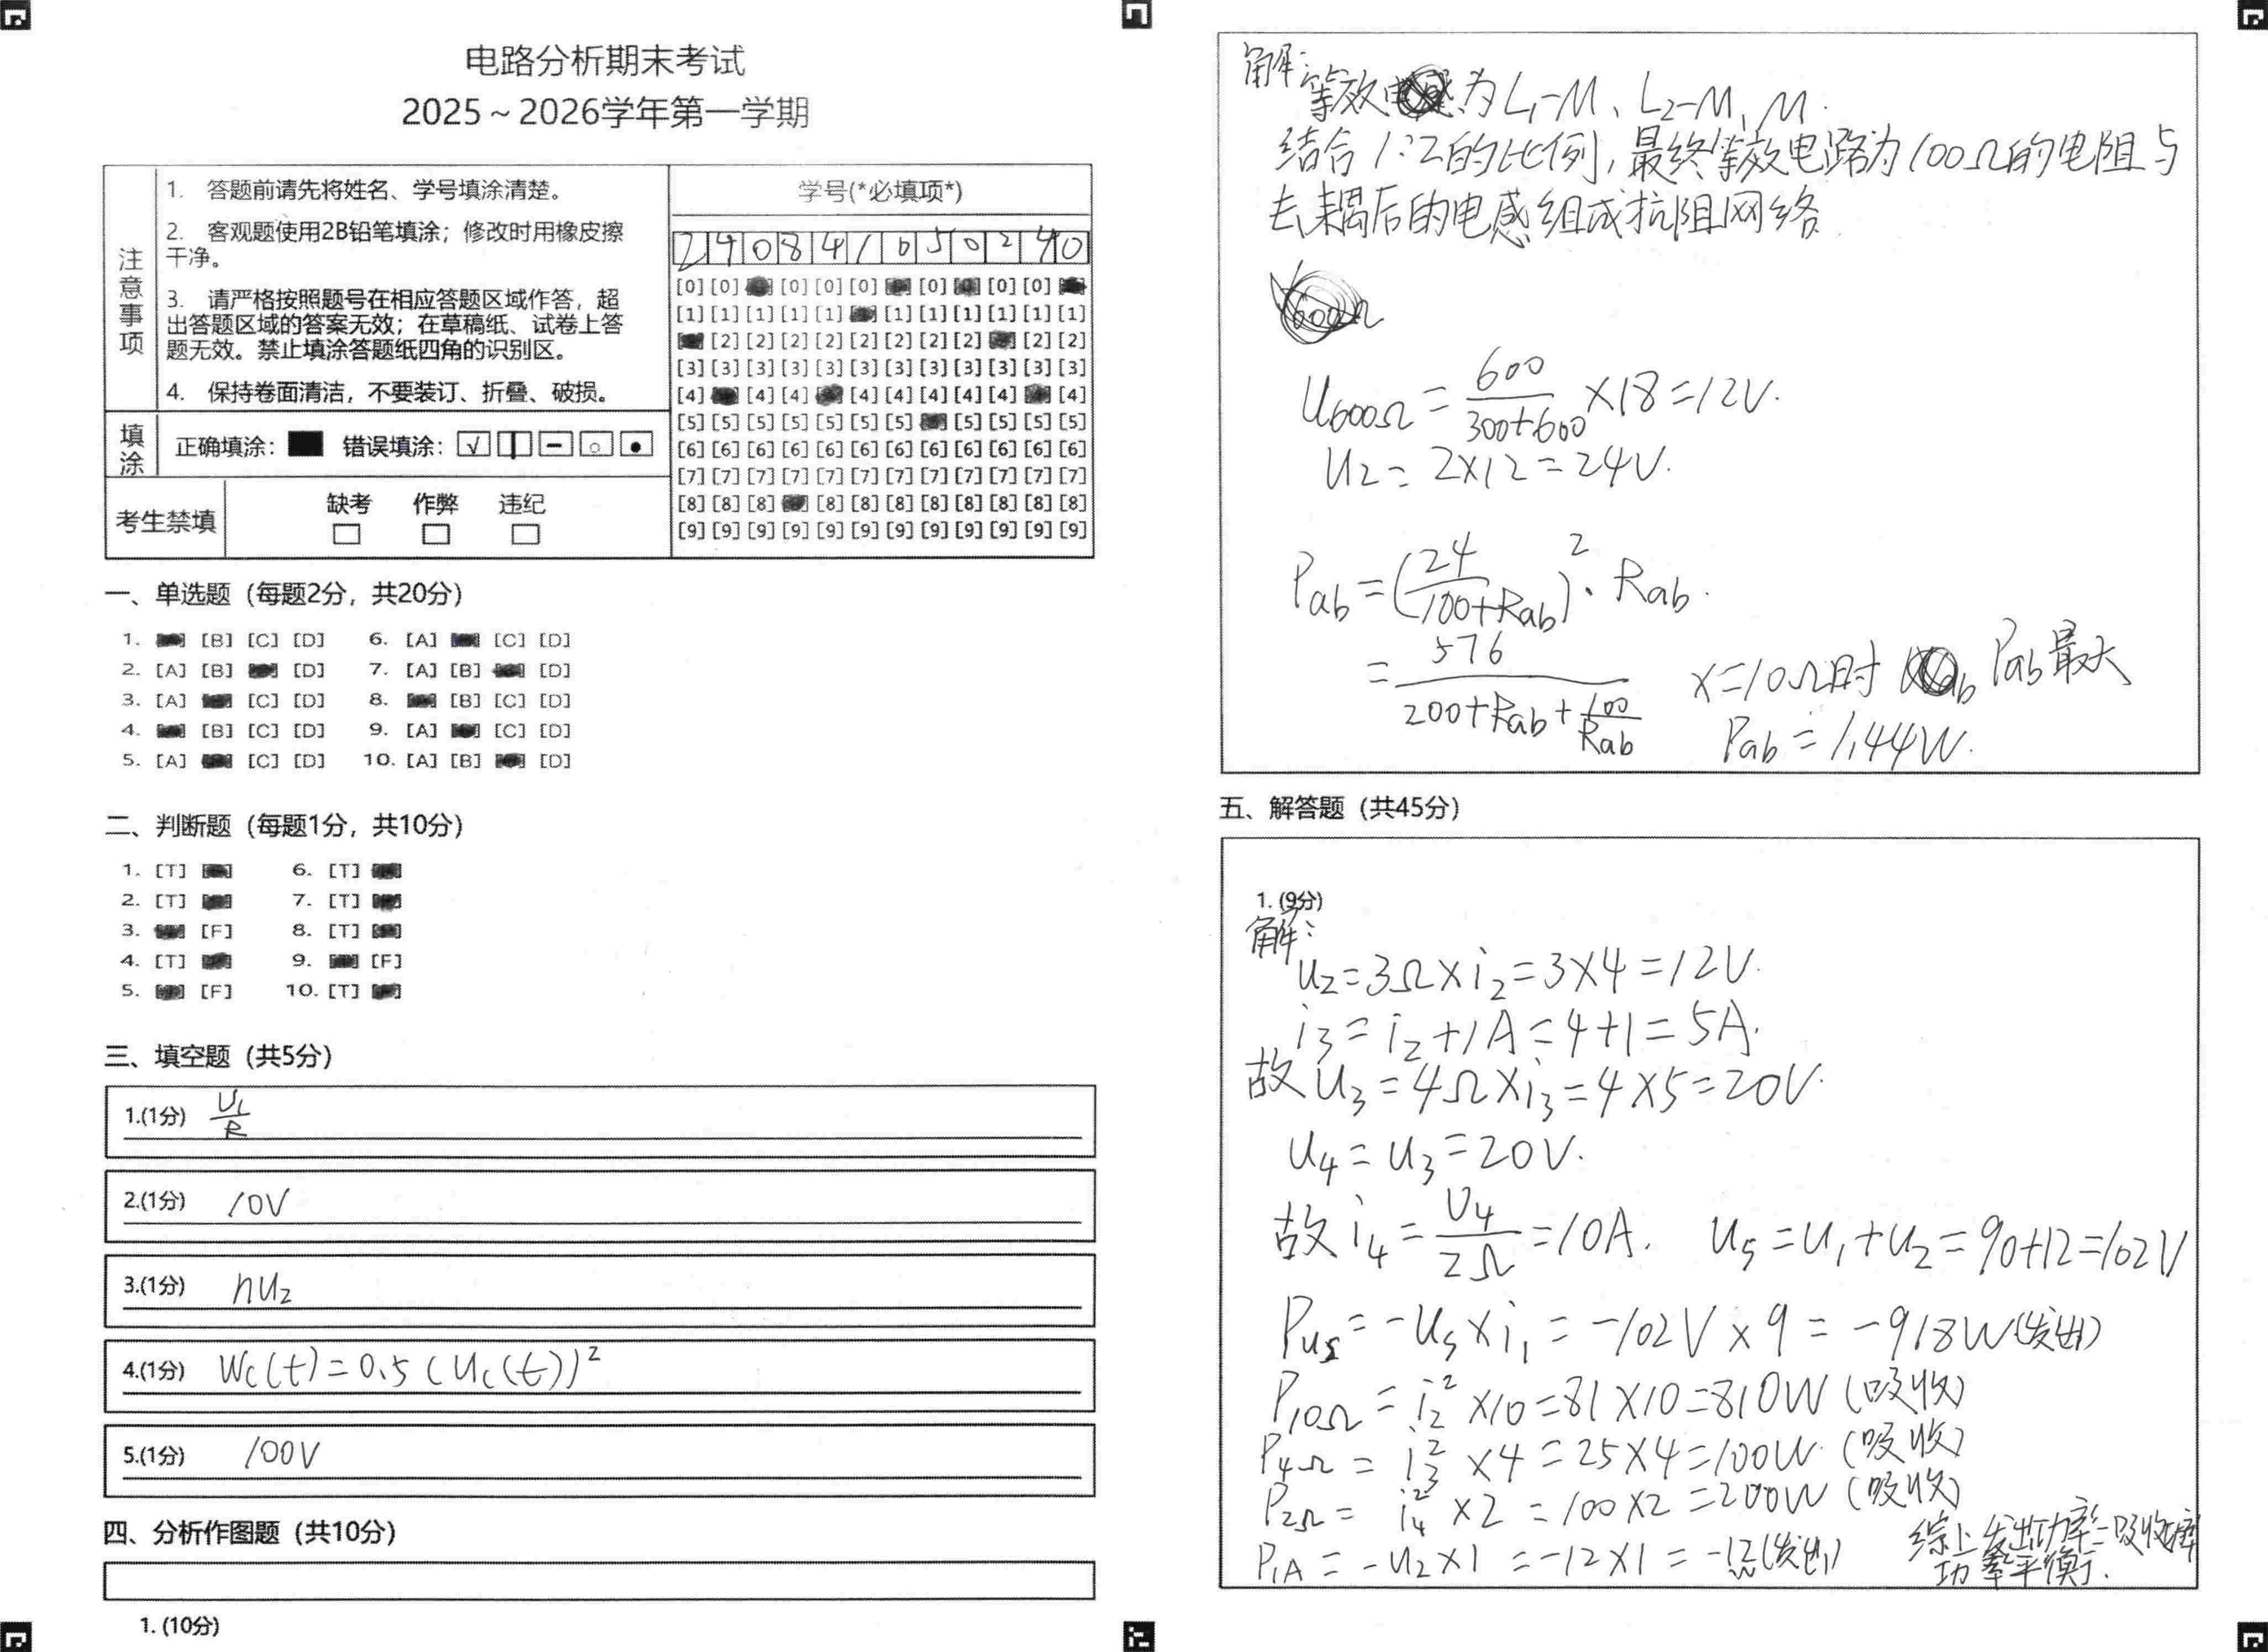 电路分析期末考试
2025～2026学年第一学期
注意事项
1. 答题前请先将姓名、学号填涂清楚。
2. 客观题使用2B铅笔填涂；修改时用橡皮擦
干净。
3. 请严格按照题号在相应答题区域作答，超
出答题区域的答案无效；在草稿纸、试卷上答
题无效。禁止填涂答题纸四角的识别区。
4. 保持卷面清洁，不要装订、折叠、破损。
填涂
正确填涂： 错误填涂：
考生禁填
缺考 作弊 违纪
学号(*必填项*)
2 4 0 8 4 1 0 5 0 2 4 0
[0] [0] [0] [0] [0] [0] [0] [0]
[1] [1] [1] [1] [1] [1] [1] [1] [1] [1] [1]
[2] [2] [2] [2] [2] [2] [2] [2] [2] [2]
[3] [3] [3] [3] [3] [3] [3] [3] [3] [3] [3] [3]
[4] [4] [4] [4] [4] [4] [4] [4] [4]
[5] [5] [5] [5] [5] [5] [5] [5] [5] [5] [5]
[6] [6] [6] [6] [6] [6] [6] [6] [6] [6] [6] [6]
[7] [7] [7] [7] [7] [7] [7] [7] [7] [7] [7] [7]
[8] [8] [8] [8] [8] [8] [8] [8] [8] [8] [8]
[9] [9] [9] [9] [9] [9] [9] [9] [9] [9] [9] [9]
一、单选题（每题2分，共20分）
1. [B] [C] [D] 6. [A] [C] [D]
2. [A] [B] [D] 7. [A] [B] [D]
3. [A] [C] [D] 8. [B] [C] [D]
4. [B] [C] [D] 9. [A] [C] [D]
5. [A] [C] [D] 10. [A] [B] [D]
二、判断题（每题1分，共10分）
1. [T] 6. [T]
2. [T] 7. [T]
3. [F] 8. [T]
4. [T] 9. [F]
5. [F] 10. [T]
三、填空题（共5分）
1.(1分) U₁/R
2.(1分) 10V
3.(1分) nu₂
4.(1分) Wc(t)=0.5(Uc(t))²
5.(1分) 100V
四、分析作图题（共10分）
1. (10分)
解：等效电感为L₁-M、L₂-M、M.
结合1:2的比例，最终等效电路为100Ω的电阻与
去耦后的电感组成抗阻网络
U600Ω = 600/(300+600) ×18=12V.
U₂= 2×12=24V.
Pab = (24/(100+Rab))²·Rab.
= 576/(200+Rab+100/Rab) x=10Ω时 Pab最大
Pab=1.44W.
五、解答题（共45分）
1. (9分)
解：
u₂=3Ω×i₂=3×4=12V.
i₃=i₂+1A=4+1=5A.
故u₃=4Ω×i₃=4×5=20V.
u₄=u₃=20V.
故i₄=U₄/2Ω=10A. u₅=u₁+u₂=90+12=102V
Pus=-us×i₁=-102V×9=-918W(发出)
P10Ω=i₂²×10=81×10=810W(吸收)
P4Ω=i₃²×4=25×4=100W(吸收)
P2Ω=i₄²×2=100×2=200W(吸收)
P1A=-u₂×1=-12×1=-12W(发出)
综上 发出功率=吸收功率
功率平衡.